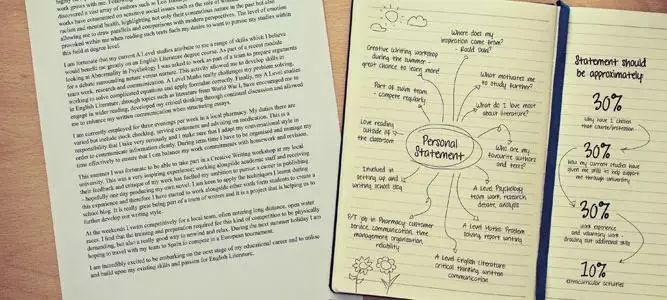 work grows with me. Following
discovered a vast array of authors such as Leo
works have commented on sensitive social issues such as the role of
racism and mental health, highlighting not only their consciousness in the past but also
allowing me to draw parallels and comparisons with modern perspectives. The level of emotion
provoked within me when reading such texts fuels my desire to want to pursue my studies within
this field at degree level.
I am fortunate that my current A Level studies attribute to me a range of skills which I believe
would benefit me greatly on an English Literature degree course. As part of a recent module
looking at Abnormality in Psychology, I was asked to work as part of a team to prepare arguments
for a debate surrounding nature versus nurture. This activity allowed me to develop skills in
team work, research and communication. A Level Maths really challenges my problem solving,
working to solve complicated equations and apply formulae correctly. Finally, my A Level studies
in English Literature, through topics such as literature from World War 1, have encouraged me to
engage in wider reading, developed my critical thinking through continual discussion and allowed
me to enhance my written communication when structuring essays.
I am currently employed for three evenings per week in a local pharmacy. My duties there are
varied but include stock checking, serving customers and advising on medication. This is a
responsibility that I take very seriously and I make sure that I adapt my conversational style in
order to communicate information clearly. During term time I have to be organised and manage my
time effectively to ensure that I can balance my work commitments with homework and revision.
This summer I was fortunate to be able to take part in a Creative Writing workshop at my local
university. This was a very inspiring experience; working alongside academic staff and receiving
their feedback and critique of my work has fuelled my ambition to pursue a career in publishing
- hopefully one day producing my own novel. I am keen to apply the techniques I learnt during
this experience and therefore I have started to work alongside other sixth form students to create a
school blog. It is really great being part of a team of writers and it is a project that is helping us to
further develop our writing style.
At the weekends I swim competitively for a local team, often entering long distance, open water
races. I find that the training and preparation required for this kind of competition to be physically
demanding, but also a really good way to unwind and relax. During the next summer holiday I am
hoping to travel with my team to Spain to compete in a European tournament.
I am incredibly excited to be embarking on the next stage of my educational career and to utilise
and build upon my existing skills and passion for English Literature.
Where does my
inspiration come from?
- Roald Dahl?
Creative Writing workshop
during the summer -
great chance to learn more!
What motivates me
to study further?
Part of swim team
- compete regularly
What do I love most
about literature?
Love reading
outside of
the classroom
Personal
Statement
Who are my
favourite authors
and texts?
Involved in
setting up and
writing school blog
A Level Psychology
team work, research,
debate, analysis
P/T job in Pharmacy: customer
service, communication, time
management, organisation,
reliability
A Level Maths: Problem
solving, report writing
A Level English Literature
critical thinking, written
communication
Statement should
be approximately:
30%
Why have I chosen
that course/profession
30%
How my current studies have
given me skills to help support
me through university
30%
Work experience
and voluntary work -
drawing out additional skills
10%
Extracurricular activities